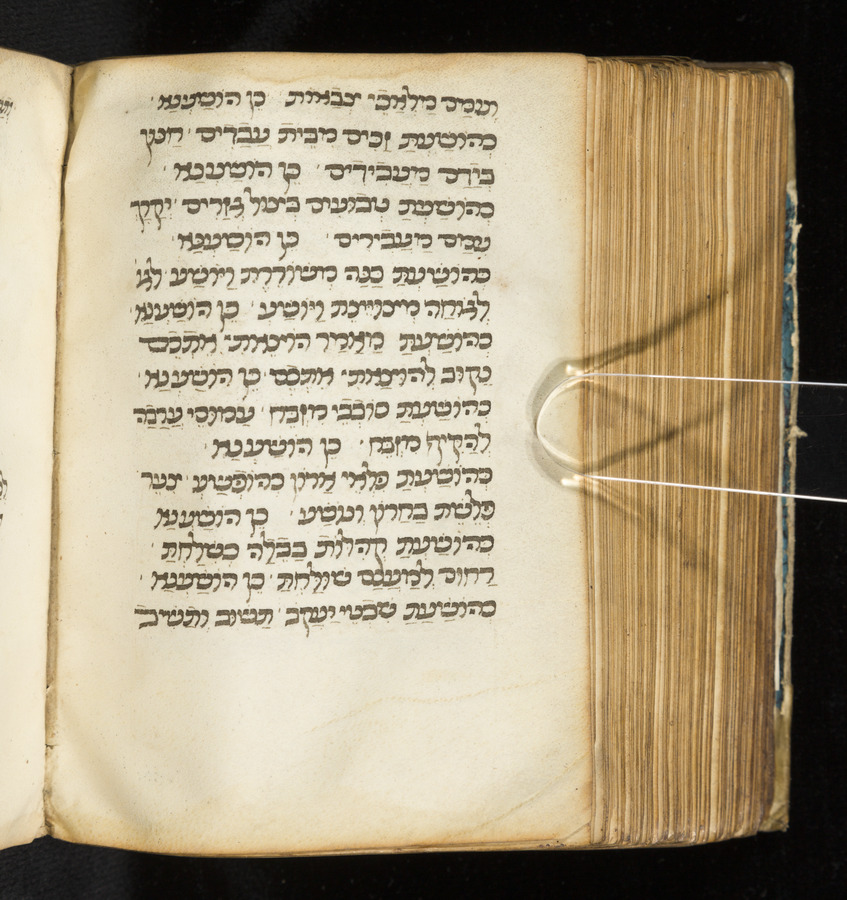 ועמם מלאכי צבאות כן הושענא
כהושעת זכים מבית עבדים חנון
בידם מעבידים כן הושענא
כהושעת טבועים בצול גזרים יקרך
עמם מעבירים כן הושענא
כהושעת כנה משוררת ויושע לגו
לגוחה מצויינת ויושע כן הושענא
כהושעת מאמר הוצאתי אתכם
נקוב להוצאתי אתכם כן הושענא
כהושעת סובבי מזבח עמוסי ערבה
להקיף מזבח כן הושענא
כהושעת פלאי ארון כהופשע צער
פלשת בחרון ונושע כן הושענא
כהושעת קהלות בבלה כשלחת
רחום למענם שולחת כן הושענא
כהושעת שבטי יעקב תשוב ותשיב